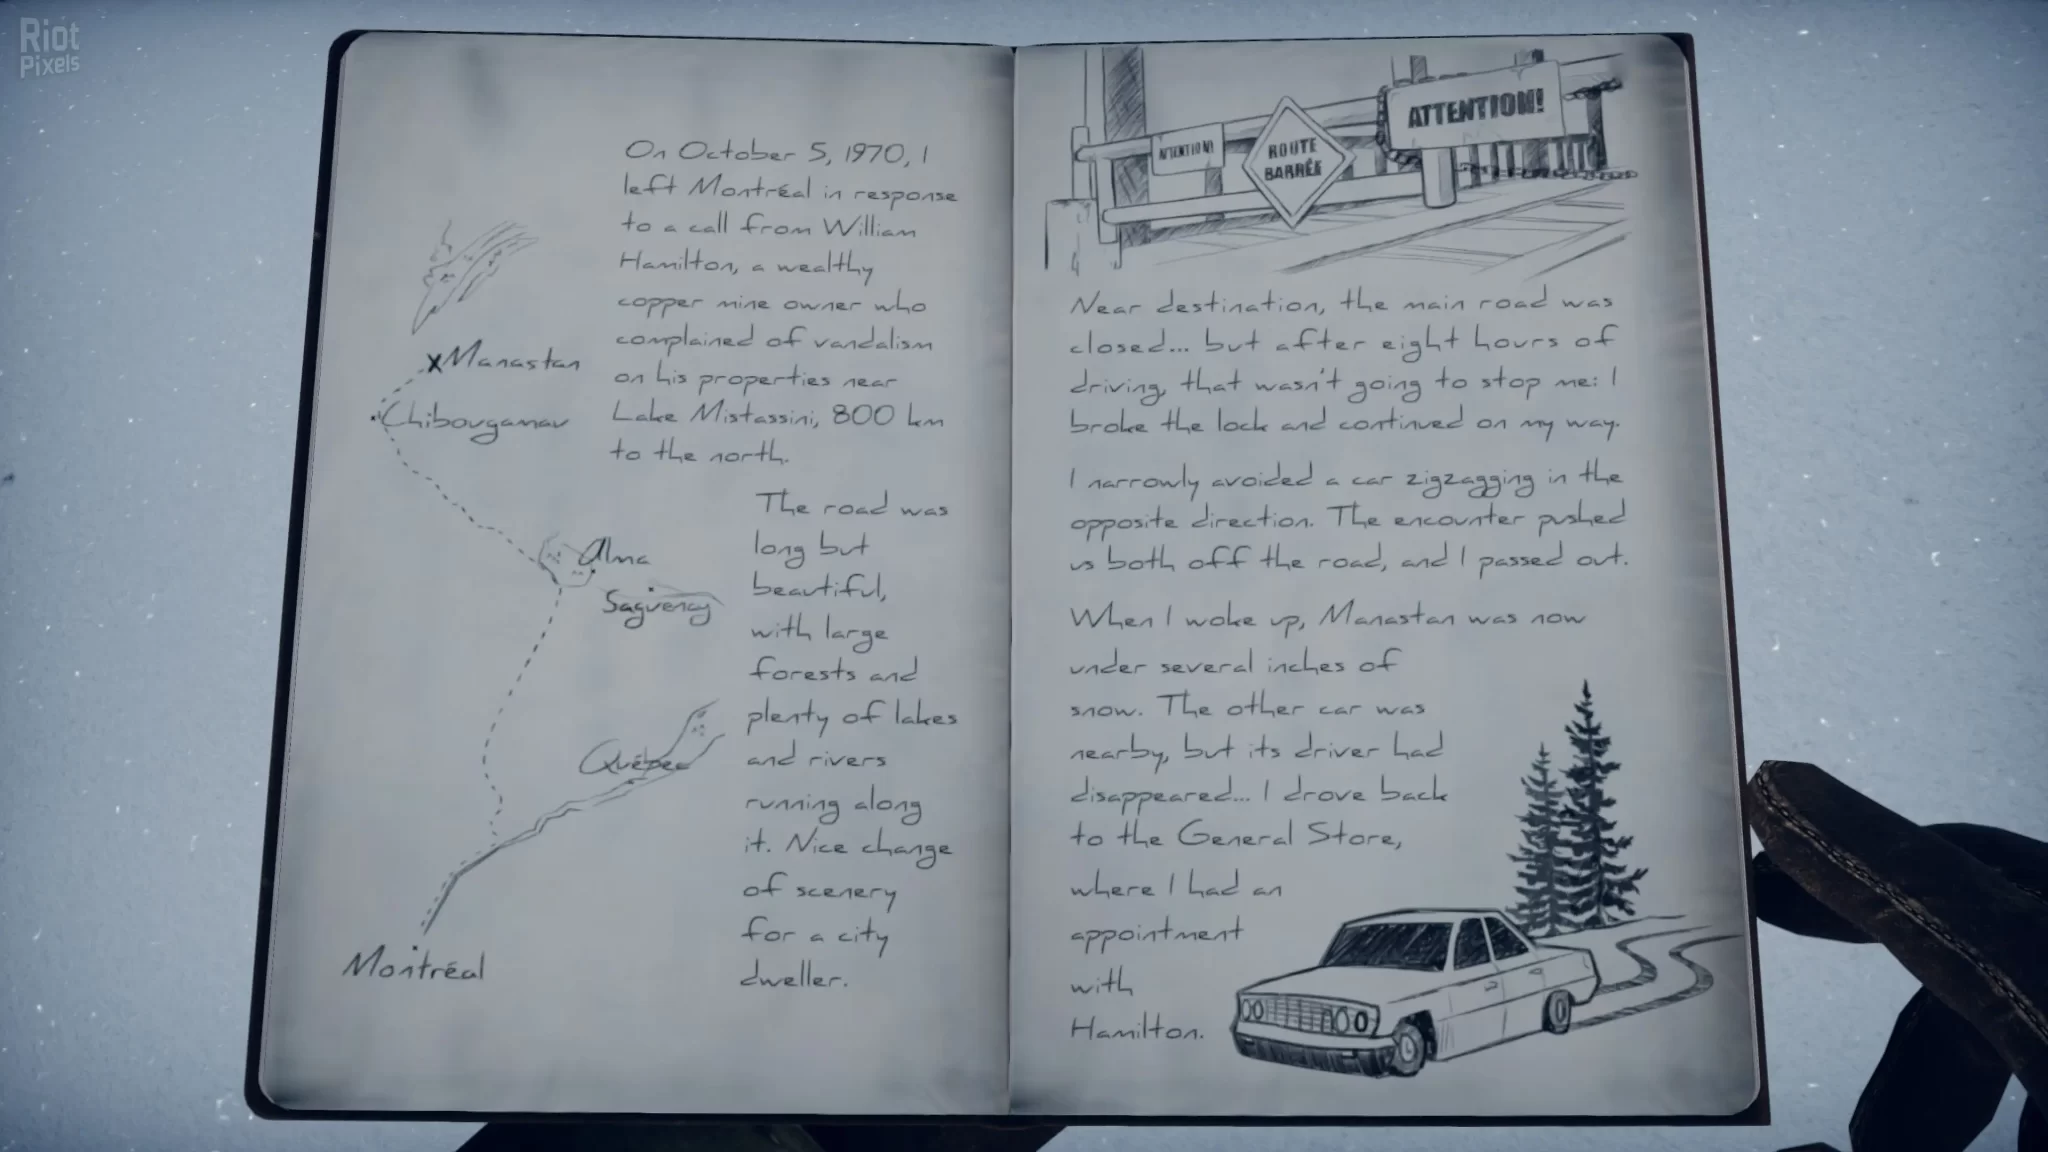 Riot
Pixels
On October 5, 1970, I
left Montréal in response
to a call from William
Hamilton, a wealthy
copper mine owner who
complained of vandalism
on his properties near
Lake Mistassini, 800 km
to the north.
Manastan
Chibougamau
Alma
Saguenay
Québec
Montréal
The road was
long but
beautiful,
with large
forests and
plenty of lakes
and rivers
running along
it. Nice change
of scenery
for a city
dweller.
ATTENTION!
ROUTE
BARRÉE
ATTENTION!
Near destination, the main road was
closed... but after eight hours of
driving, that wasn't going to stop me: I
broke the lock and continued on my way.
I narrowly avoided a car zigzagging in the
opposite direction. The encounter pushed
us both off the road, and I passed out.
When I woke up, Manastan was now
under several inches of
snow. The other car was
nearby, but its driver had
disappeared... I drove back
to the General Store,
where I had an
appointment
with
Hamilton.